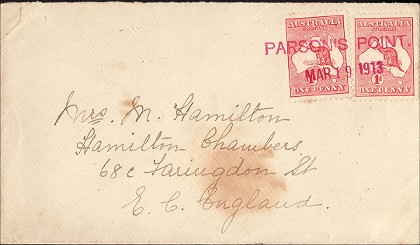 AUSTRALIA AUSTRALIA
POSTAGE POSTAGE
PARSON'S POINT.
MAR 19 1913
1D
ONE PENNY ONE PENNY
Mrs. M. Hamilton
Hamilton Chambers
68c Faringdon St
E. C. England.